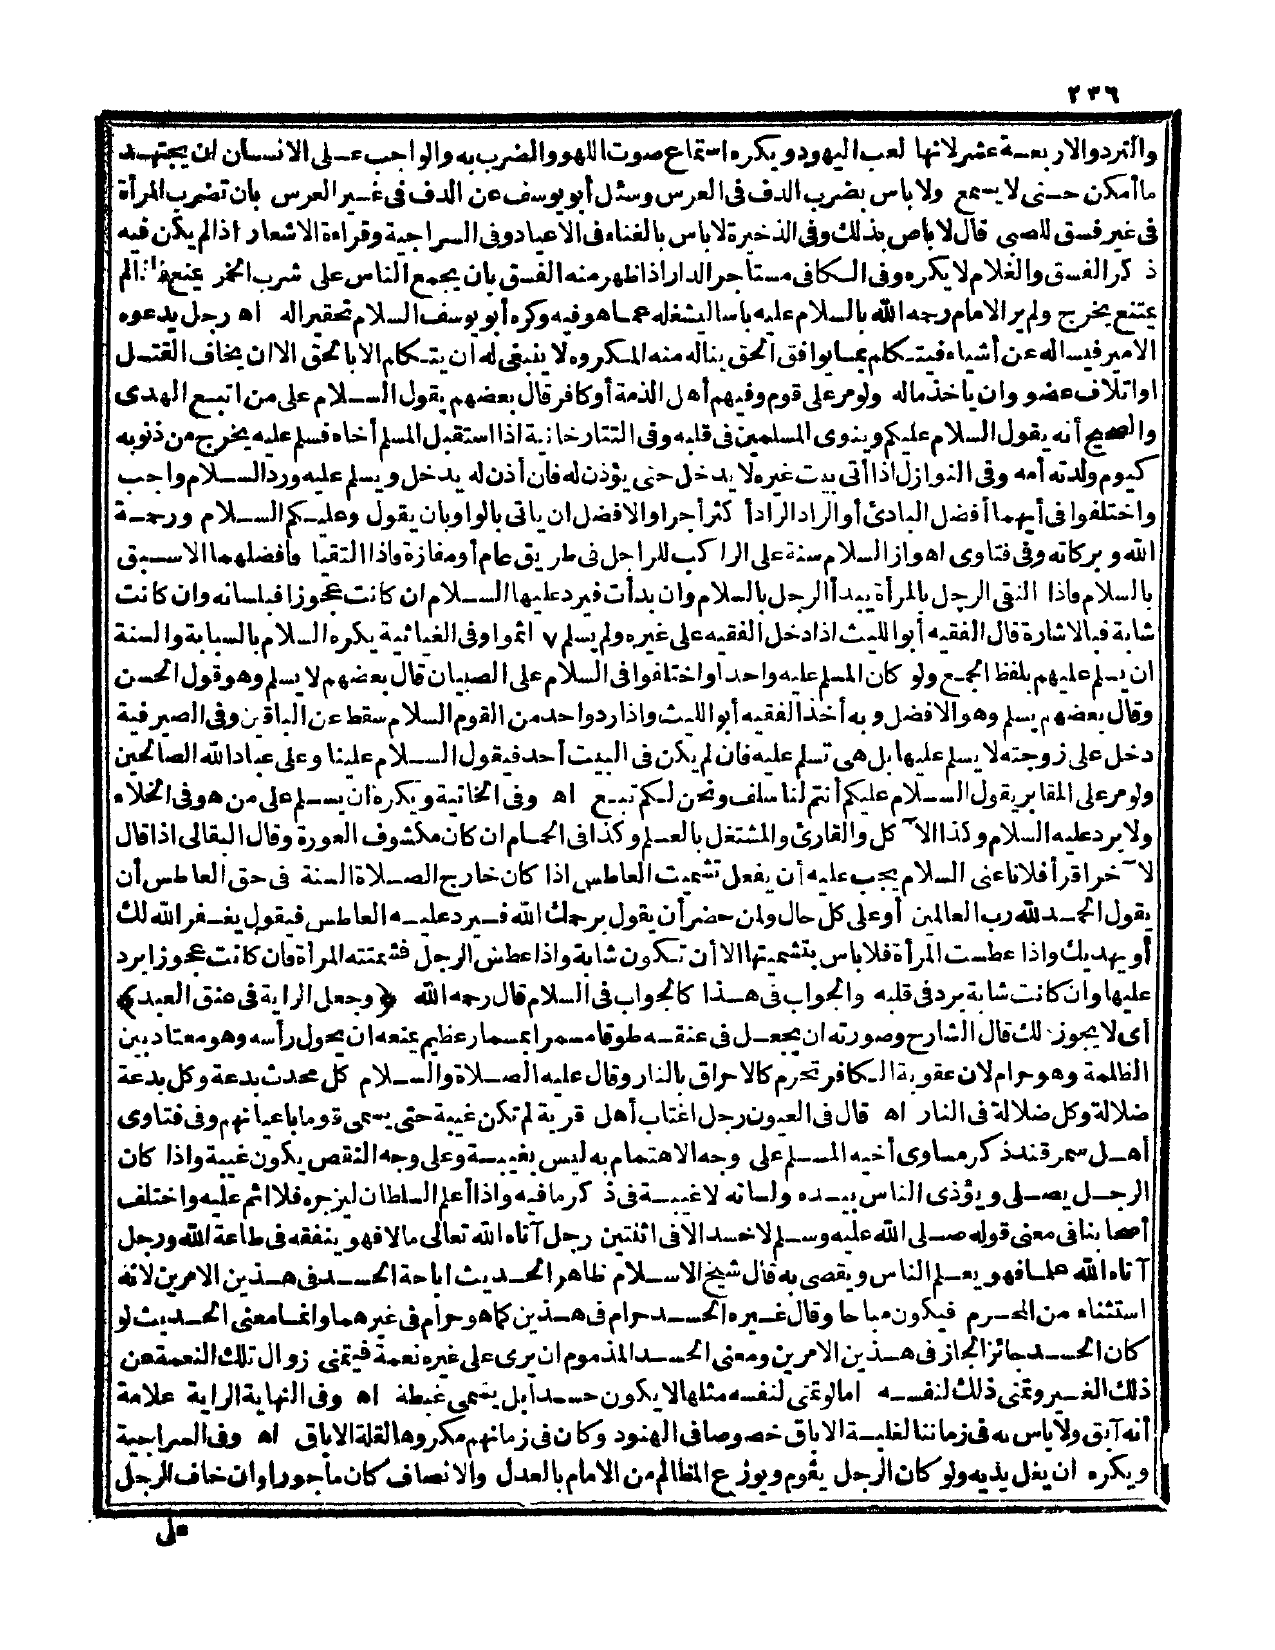 ٢٣٦
والنردوالاربعة عشر لانها لعب اليهود ويكره استماع صوت اللهو والضرب به والواجب على الانسان ان يجتهد
ما أمكن حتى لا يسمع ولا باس بضرب الدف فى العرس وسئل أبو يوسف عن الدف فى غير العرس بان تضرب المرأة
فى غير فسق للصبى قال لا باص بذلك وفى الذخيرة لا باس بالغناء فى الاعياد وفى السراجية وقراءة الاشعار اذا لم يكن فيه
ذكر الفسق والغلام لا يكره وفى الكافى مستأجر الدار اذا ظهر منه الفسق بان يجمع الناس على شرب الخمر يمنع الم
يمتنع يخرج ولم ير الامام رحمه الله بالسلام عليه باسا ليشغله عما هو فيه وكره أبو يوسف السلام تحقيرا له اه رجل يدعوه
الامير فيساله عن أشياء فيتكلم بما يوافق الحق يناله منه المكروه لا ينبغى له أن يتكلم الا بالحق الا ان يخاف القتل
او اتلاف عضو وان ياخذ ماله ولو مر على قوم وفيهم أهل الذمة أو كافر قال بعضهم يقول السلام على من اتبع الهدى
والصحيح أنه يقول السلام عليكم وينوى المسلمين فى قلبه وفى التتارخانية اذا استقبل المسلم أخاه فسلم عليه يخرج من ذنوبه
كيوم ولدته أمه وفى النوازل اذا أتى بيت غيره لا يدخل حتى يؤذن له فان أذن له يدخل ويسلم عليه ورد السلام واجب
واختلفوا فى أيهما أفضل البادئ أو الراد الراد أكثر أجرا والافضل ان ياتى بالواو بان يقول وعليكم السلام ورحمة
الله وبركاته وفى فتاوى اهواز السلام سنة على الراكب للراجل فى طريق عام أو مفازة واذا التقيا فافضلهما الاسبق
بالسلام واذا التقى الرجل بالمرأة يبدأ الرجل بالسلام وان بدأت فيرد عليها السلام ان كانت عجوزا فبلسانه وان كانت
شابة فبالاشارة قال الفقيه أبو الليث اذا دخل الفقيه على غيره ولم يسلم ٧ اثموا وفى الغيائية يكره السلام بالسبابة والسنة
ان يسلم عليهم بلفظ الجمع ولو كان المسلم عليه واحدا واختلفوا فى السلام على الصبيان قال بعضهم لا يسلم وهو قول الحسن
وقال بعضهم يسلم وهو الافضل وبه أخذ الفقيه أبو الليث واذا رد واحد من القوم السلام سقط عن الباقين وفى الصيرفية
دخل على زوجته لا يسلم عليها بل هى تسلم عليه فان لم يكن فى البيت أحد فيقول السلام علينا وعلى عباد الله الصالحين
ولو مر على المقابر يقول السلام عليكم أنتم لنا سلف ونحن لكم تبع اه وفى الخانية ويكره ان يسلم على من هو فى الخلاء
ولا يرد عليه السلام وكذا الآكل والقارئ والمشتغل بالعلم وكذا فى الحمام ان كان مكشوف العورة وقال البقالى اذا قال
لآخر اقرأ فلانا عنى السلام يجب عليه أن يفعل تشميت العاطس اذا كان خارج الصلاة السنة فى حق العاطس أن
يقول الحمد لله رب العالمين أو على كل حال ولمن حضر أن يقول يرحمك الله فيرد عليه العاطس فيقول يغفر الله لك
أو يهديك واذا عطست المرأة فلا باس بتشميتها الا أن تكون شابة واذا عطش الرجل فشمتته المرأة فان كانت عجوزا يرد
عليها وان كانت شابة يرد فى قلبه والجواب فى هذا كالجواب فى السلام قال رحمه الله ﴿وجعل الراية فى عنق العبد﴾
أى لا يجوز ذلك قال الشارح وصورته ان يجعل فى عنقه طوقا مسمرا بمسمار عظيم يمنعه ان يحول رأسه وهو معتاد بين
الظلمة وهو حرام لان عقوبة الكافر تحرم كالاحراق بالنار وقال عليه الصلاة والسلام كل محدث بدعة وكل بدعة
ضلالة وكل ضلالة فى النار اه قال فى العيون رجل اغتاب أهل قرية لم تكن غيبة حتى يسمى قوما باعيانهم وفى فتاوى
أهل سمرقند ذكر مساوى أخيه المسلم على وجه الاهتمام به ليس بغيبة وعلى وجه النقص يكون غيبة واذا كان
الرجل يصلى ويؤذى الناس بيده ولسانه لا غيبة فى ذكر ما فيه واذا أعلم السلطان ليزجره فلا اثم عليه واختلف
أصحابنا فى معنى قوله صلى الله عليه وسلم لا حسد الا فى اثنتين رجل آتاه الله تعالى مالا فهو ينفقه فى طاعة الله ورجل
آتاه الله علما فهو يعلم الناس ويقضى به قال شيخ الاسلام ظاهر الحديث اباحة الحسد فى هذين الامرين لانه
استثناء من المحرم فيكون مباحا وقال غيره الحسد حرام فى هذين كما هو حرام فى غيرهما وانما معنى الحديث لو
كان الحسد جائز الجاز فى هذين الامرين ومعنى الحسد المذموم ان يرى على غيره نعمة فيتمنى زوال تلك النعمة عن
ذلك الغير وتمنى ذلك لنفسه اما لو تمنى لنفسه مثلها لا يكون حسدا بل يسمى غبطة اه وفى النهاية الراية علامة
أنه آبق ولا باس به فى زماننا لغلبة الاباق خصوصا فى الهنود وكان فى زمانهم مكروها لقلة الاباق اه وفى السراجية
ويكره ان يغل يديه ولو كان الرجل يقوم ويوزع المظالم من الامام بالعدل والانصاف كان مأجورا وان خاف الرجل